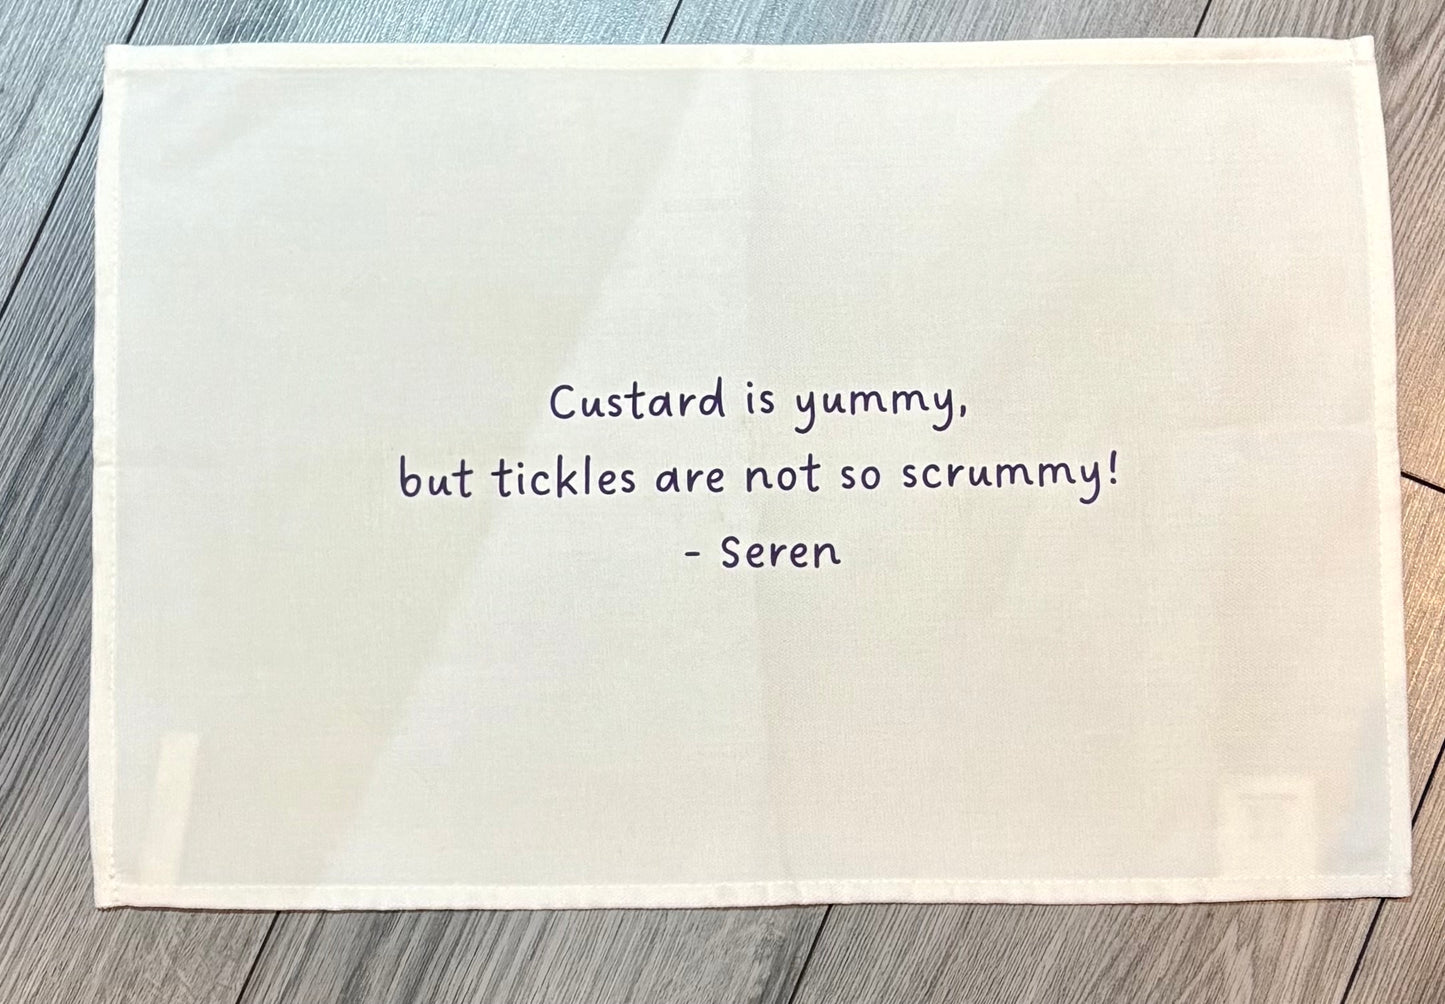 Custard is yummy,
but tickles are not so scrummy!
- Seren